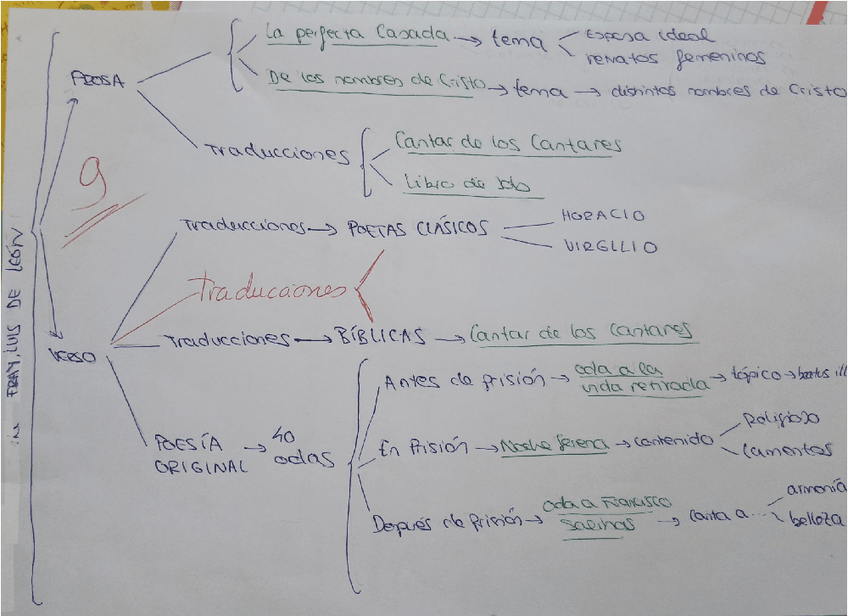 FRAY, LUIS DE LEÓN
PROSA
La perfecta Casada → tema
Esposa ideal
retratos femeninos
De los nombres de Cristo → tema → distintos nombres de Cristo
Traducciones
Cantar de los Cantares
Libro de Job
9
VERSO
Traducciones → POETAS CLÁSICOS
HORACIO
VIRGILIO
Traducciones
Traducciones → BÍBLICAS → Cantar de los Cantares
POESÍA
ORIGINAL
→ 40
odas
Antes de prisión → oda a la
vida retirada → tópico → beatus ill
En Prisión → Noche Serena → contenido
Religioso
Lamentos
Después de prisión → oda a Francisco
Salinas → canta a...
armonía
belleza